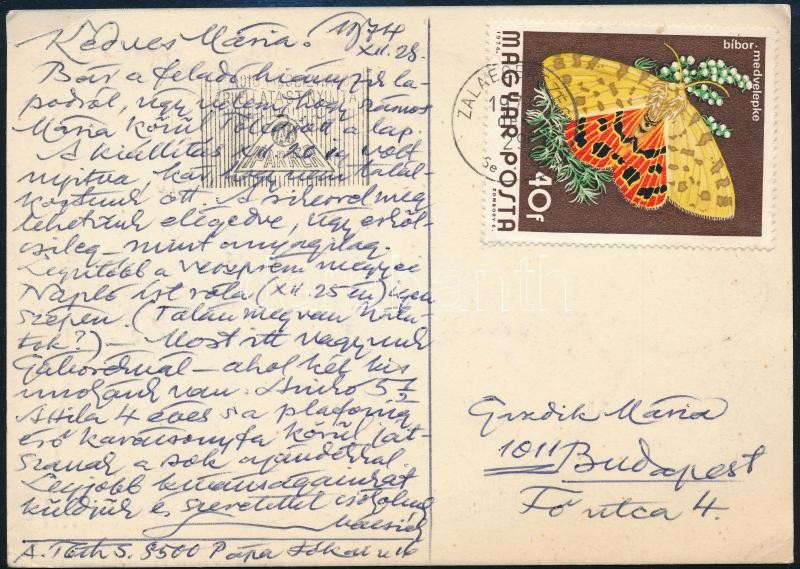 Kedves Mária! 1974
XII. 28.
Bár a feladó hiányzik la-
podról, úgy hogy
Mária körül a lap.
A kiállítás XII. 20 volt
nyitva, kár hogy nem talál-
koztunk ott. A sikerrel meg
lehetünk elégedve, úgy erköl-
csileg – mint anyagilag.
Legutóbb a veszprém megyei
Napló írt róla (XII. 25 én) igen
szépen. (Talán meg van
tok?) – Most itt vagyunk
Gáboréknál – ahol két kis
unokánk van. Anikó 5 1/2
Attila 4 éves s a plafonig
érő karácsonyfa körül ját-
szanak a sok ajándékkal.
Legjobb kívánságainkat
küldjük és szeretettel csókolunk
A. Tóth S. 8500 Pápa Jókai u 16
MAGYAR POSTA
40f
bíbor-medvelepke
1974.
ZOMBORY É.
ZALAEGERSZEG
Mária
1011 Budapest
Fő utca 4.